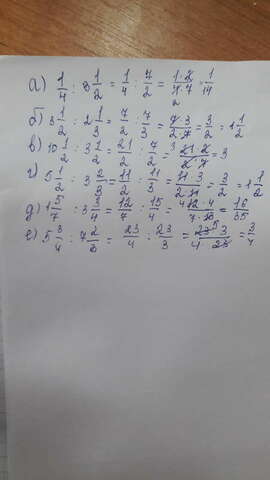 а) 1/4 : 3 1/2 = 1/4 : 7/2 = 1·2/4·7 = 1/14
2
б) 3 1/2 : 2 1/3 = 7/2 : 7/3 = 7·3/2·7 = 3/2 = 1 1/2
в) 10 1/2 : 3 1/2 = 21/2 : 7/2 = 3 21·2/2·7 = 3
г) 5 1/2 : 3 2/3 = 11/2 : 11/3 = 11·3/2·11 = 3/2 = 1 1/2
д) 1 5/7 : 3 3/4 = 12/7 : 15/4 = 4 12·4/7·15 5 = 16/35
е) 5 3/4 : 7 2/3 = 23/4 : 23/3 = 23·3/4·23 = 3/4